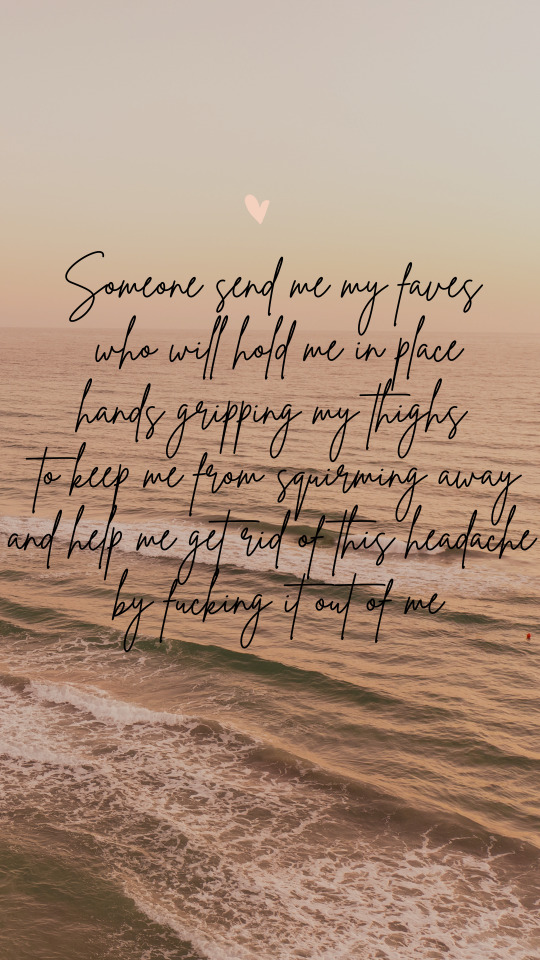 Someone send me my faves
who will hold me in place
hands gripping my thighs
to keep me from squirming away
and help me get rid of this headache
by fucking it out of me